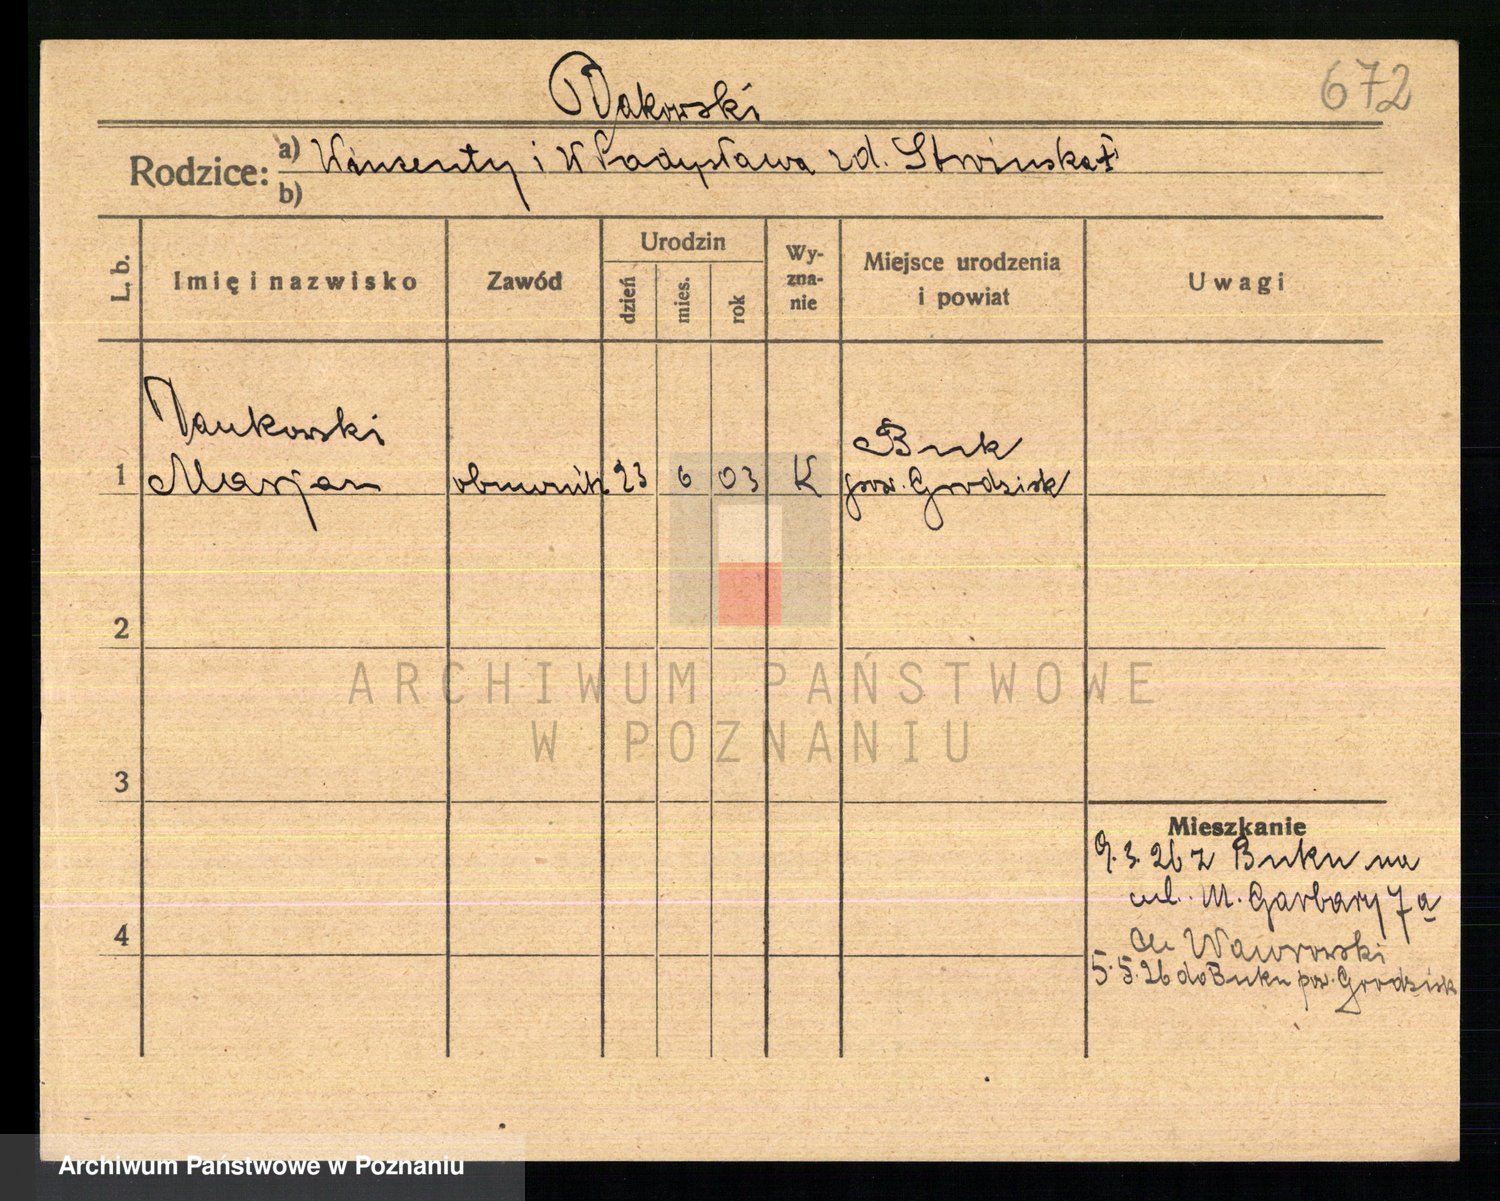 672
Rodzice: a) Winsenty i Władysława zd. Słwinska†
b)
L. b.
Imię i nazwisko
Zawód
Urodzin
dzień
mies.
rok
Wy-
zna-
nie
Miejsce urodzenia
i powiat
Uwagi
1
Marjan
23
6
03
K
Buk
pow. Grodzisk
2
3
4
Mieszkanie
9.3.26 z Buku na
ul. M. Garbary 7a
5.5.26 do Buku pow. Grodzisk
ARCHIWUM PAŃSTWOWE
W POZNANIU
Archiwum Państwowe w Poznaniu